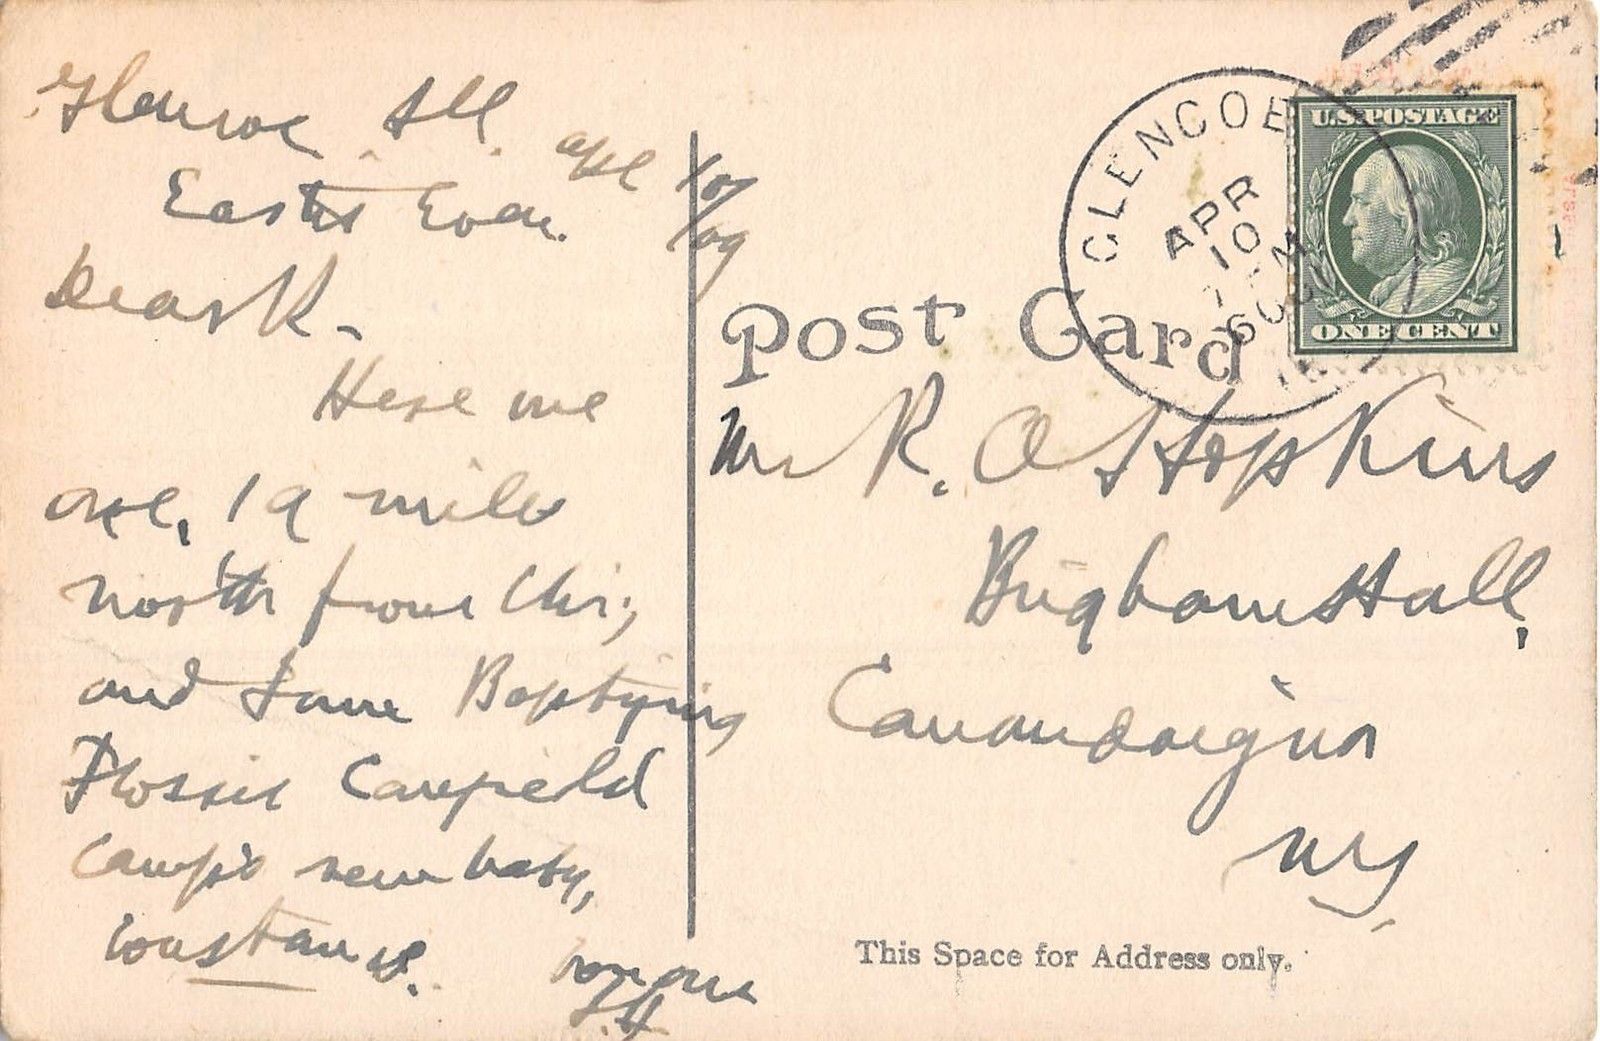 Glencoe. Ill. Apl 10/09
Easter Eve.
Dear R.
Here we
are, 19 miles
north from Chi;
and I am Baptizing
Flossie Canfield
Camp's new baby,
Constance.
T.H.
U.S. POSTAGE
ONE CENT
GLENCOE
APR
10
Post Card
Mr R. O Hopkins
Brigham Hall,
Canandaigua
NY
This Space for Address only.